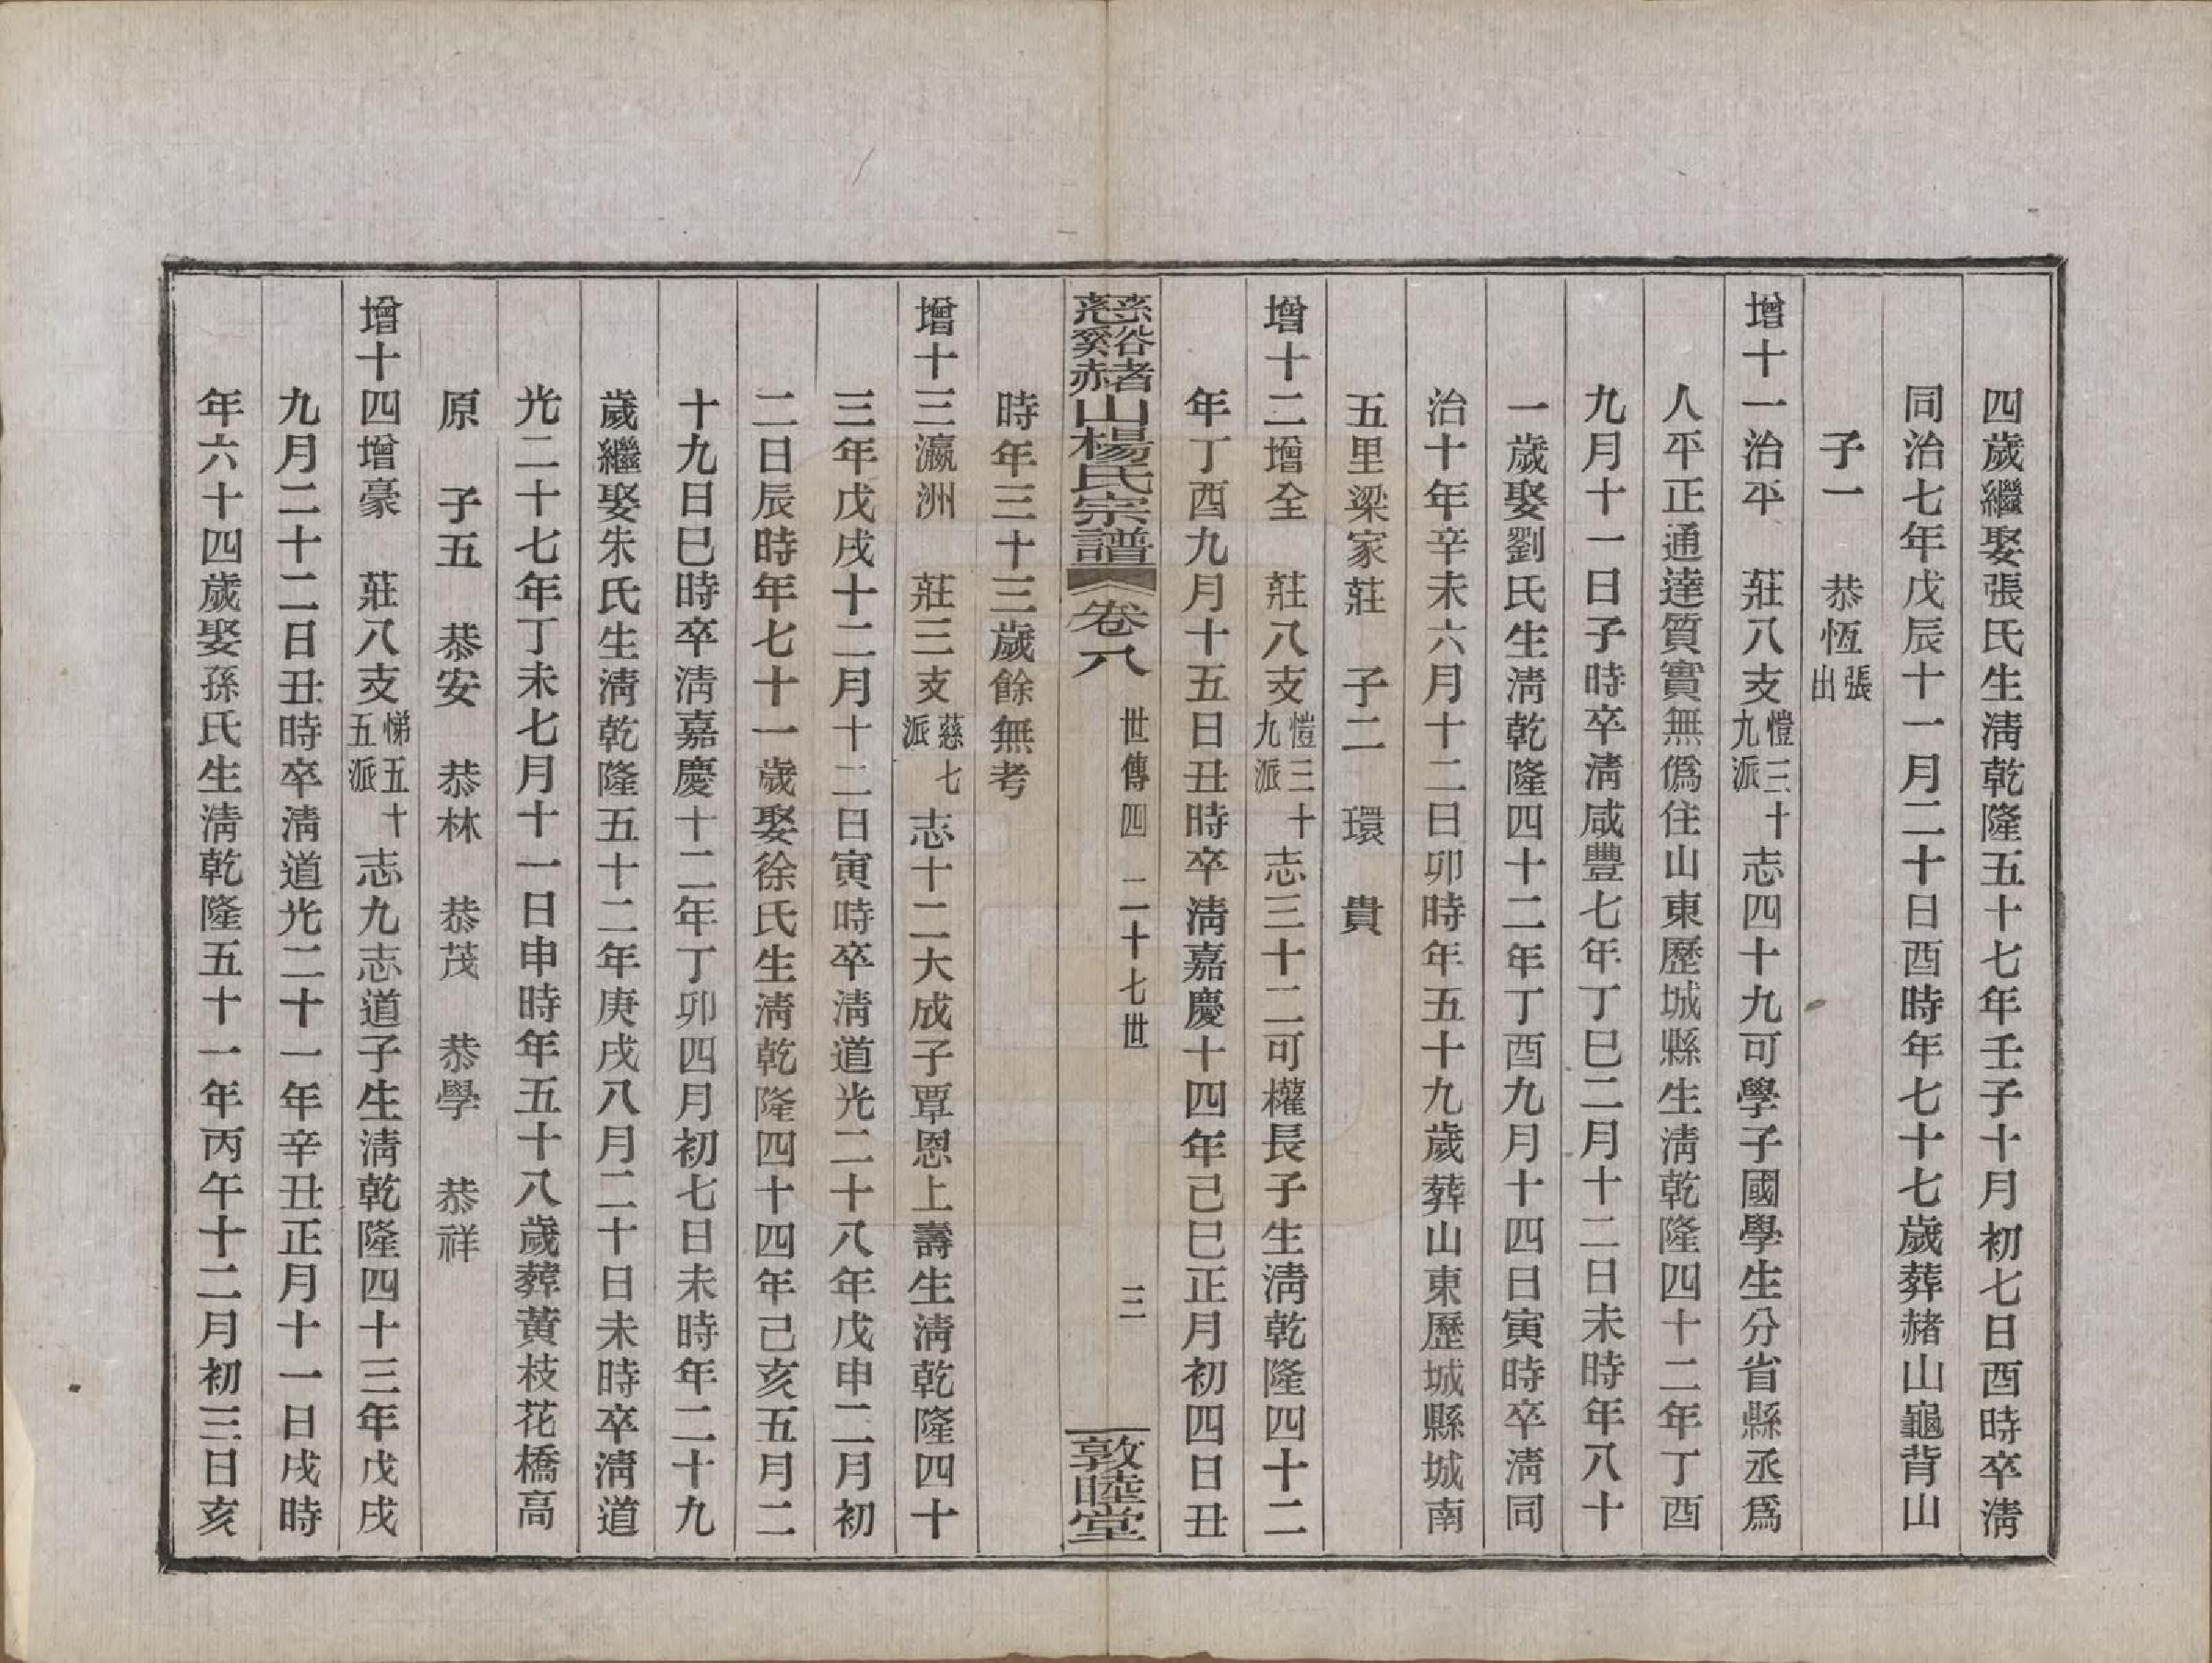 四歲繼娶張氏生淸乾隆五十七年壬子十月初七日酉時卒淸
同治七年戊辰十一月二十日酉時年七十七歲葬赭山龜背山
子一　恭恆張出
增十一治平　莊八支愷三十九派志四十九可學子國學生分省縣丞爲
人平正通達質實無僞住山東歷城縣生淸乾隆四十二年丁酉
九月十一日子時卒淸咸豐七年丁巳二月十二日未時年八十
一歲娶劉氏生淸乾隆四十二年丁酉九月十四日寅時卒淸同
治十年辛未六月十二日卯時年五十九歲葬山東歷城縣城南
五里梁家莊　子二　環　貴
增十二增全　莊八支愷三十九派志三十二可權長子生淸乾隆四十二
年丁酉九月十五日丑時卒淸嘉慶十四年己巳正月初四日丑
慈谿赭山楊氏宗譜　卷八　世傳四　二十七世　三　敦睦堂
時年三十三歲餘無考
增十三瀛洲　莊三支慈七派志十二大成子覃恩上壽生淸乾隆四十
三年戊戌十二月十二日寅時卒淸道光二十八年戊申二月初
二日辰時年七十一歲娶徐氏生淸乾隆四十四年己亥五月二
十九日巳時卒淸嘉慶十二年丁卯四月初七日未時年二十九
歲繼娶朱氏生淸乾隆五十二年庚戌八月二十日未時卒淸道
光二十七年丁未七月十一日申時年五十八歲葬黃枝花橋高
原　子五　恭安　恭林　恭茂　恭學　恭祥
增十四增豪　莊八支悌五十五派志九志道子生淸乾隆四十三年戊戌
九月二十二日丑時卒淸道光二十一年辛丑正月十一日戌時
年六十四歲娶孫氏生淸乾隆五十一年丙午十二月初三日亥